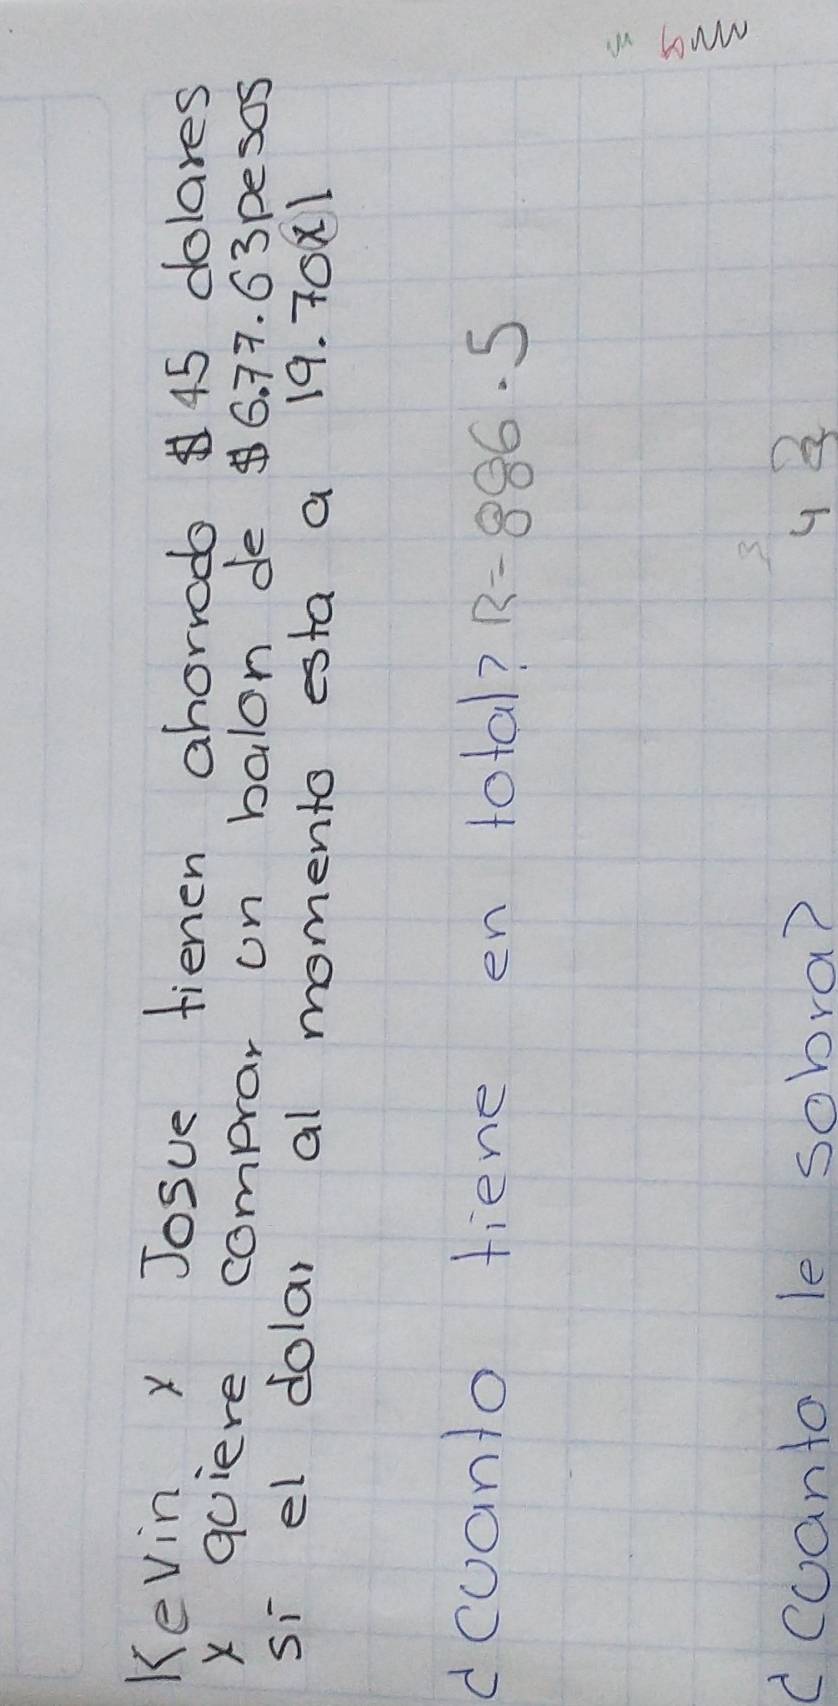 Kevin y Josue tienen ahorrado $45 dolares
y quiere comprar un balon de $677.63pesos
si el dolar al momento esta a 19.70x1
¿cuanto tiene en total? R=886.5
¿cuanto le sobra?